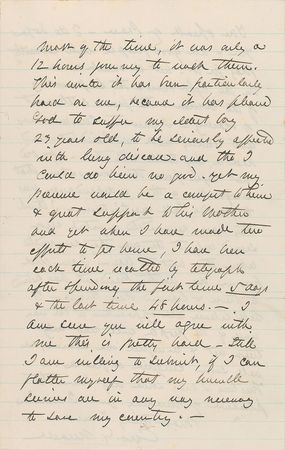 most of the time, it was only a
12 hours journey to reach them.
This winter it has been particularly
hard on me, because it has pleased
God to suffer my eldest boy
23 years old, to be seriously affected
with lung disease - and tho I
could do him no good - yet my
presence would be a comfort to him
& great support to his Mother
and yet when I have made two
efforts to get home, I have been
each time recalled by telegraph
after spending the first time 5 days
& the last time 48 hours. - . I
am sure you will agree with
me this is pretty hard - Still
I am willing to submit, if I can
flatter myself that my humble
services are in any way necessary
to save my country. -